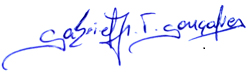 Gabriel h. T. Gonçalves